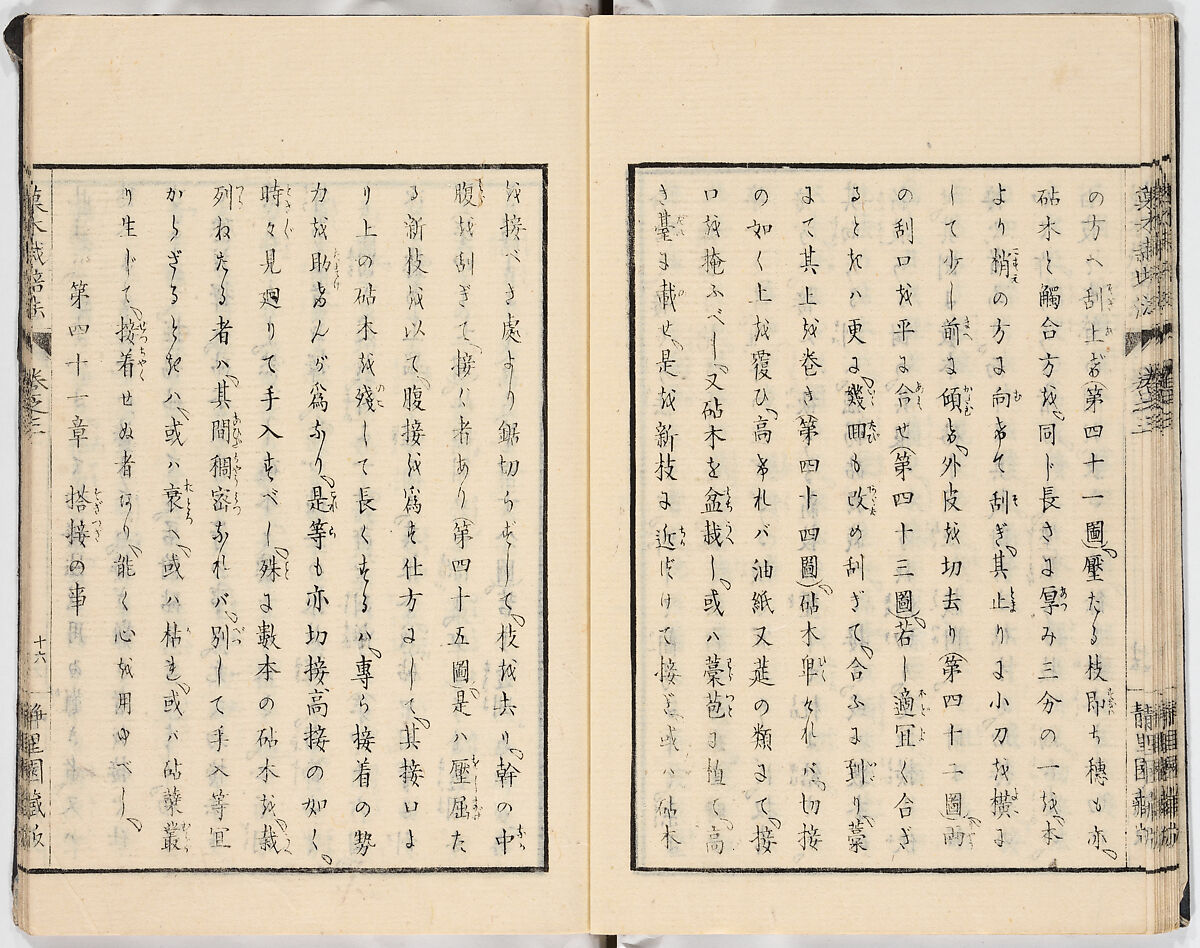 の方へ刮上げ(第四十一圖)壓たる枝即ち穗も亦
砧木と觸合方を同じ長さに厚み三分の一を本
より梢の方に向けて刮ぎ其止りに小刀を横に
して少し前に傾け外皮を切去り(第四十二圖)兩
の刮口を平に合せ(第四十三圖)若し適宜く合ぎ
るときハ更に幾囬も改め刮ぎて合ふに到り藁
にて其上を卷き(第四十四圖)砧木卑けれバ切接
の如く上を覆ひ高けれバ油紙又莚の類にて接
口を掩ふべし又砧木を盆栽し或ハ藁苞に植て高
き臺に載せ是を新枝に近づけて接ぎ或ハ砧木
を接べき處より鋸切らずして枝を去り幹の中
腹を刮ぎて接く者あり(第四十五圖)是ハ壓屈た
る新枝を以て腹接を爲す仕方にして其接口よ
り上の砧木を殘して長くするハ專ら接着の勢
力を助けんが爲なり是等も亦切接高接の如く
時々見廻りて手入すべし殊に數本の砧木を栽
列ねたる者ハ其間稠密なれバ別して手入等宜
からざるときハ或ハ衰へ或ハ枯れ或ハ砧蘖叢
り生じて接着せぬ者あり能く心を用ゆべし
第四十二章 搭接の事
菓木栽培法 卷之三 十六 靜里園藏版